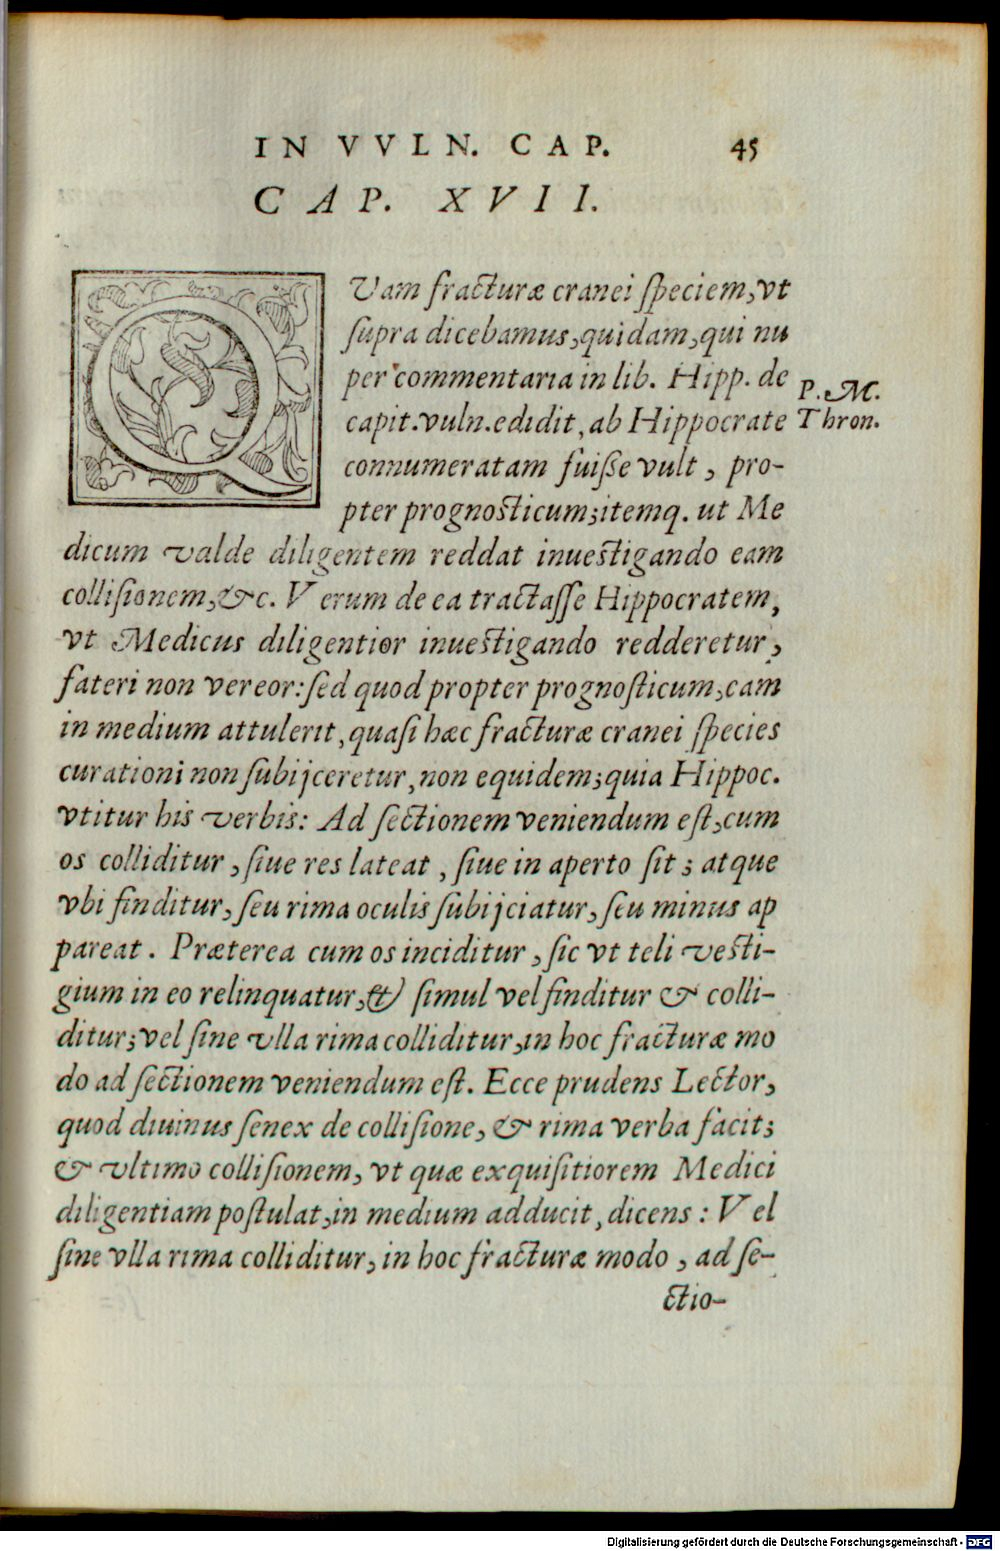 IN VVLN. CAP. 45
CAP. XVII.
QVam fracturæ cranei speciem, vt
supra dicebamus, quidam, qui nu
per commentaria in lib. Hipp. de
P. M.
capit. vuln. edidit, ab Hippocrate
Thron.
connumeratam fuiße vult, pro-
pter prognosticum; itemq. ut Me
dicum valde diligentem reddat inuestigando eam
collisionem, &c. Verum de ea tractasse Hippocratem,
vt Medicus diligentior inuestigando redderetur,
fateri non vereor: sed quod propter prognosticum, eam
in medium attulerit, quasi hæc fracturæ cranei species
curationi non subijceretur, non equidem; quia Hippoc.
vtitur his verbis: Ad sectionem veniendum est, cum
os colliditur, siue res lateat, siue in aperto sit; atque
vbi finditur, seu rima oculis subijciatur, seu minus ap
pareat. Præterea cum os inciditur, sic vt teli vesti-
gium in eo relinquatur, & simul vel finditur & colli-
ditur; vel sine vlla rima colliditur, in hoc fracturæ mo
do ad sectionem veniendum est. Ecce prudens Lector,
quod diuinus senex de collisione, & rima verba facit;
& vltimo collisionem, vt quæ exquisitiorem Medici
diligentiam postulat, in medium adducit, dicens: Vel
sine vlla rima colliditur, in hoc fracturæ modo, ad se-
ctio-
Digitalisierung gefördert durch die Deutsche Forschungsgemeinschaft - DFG